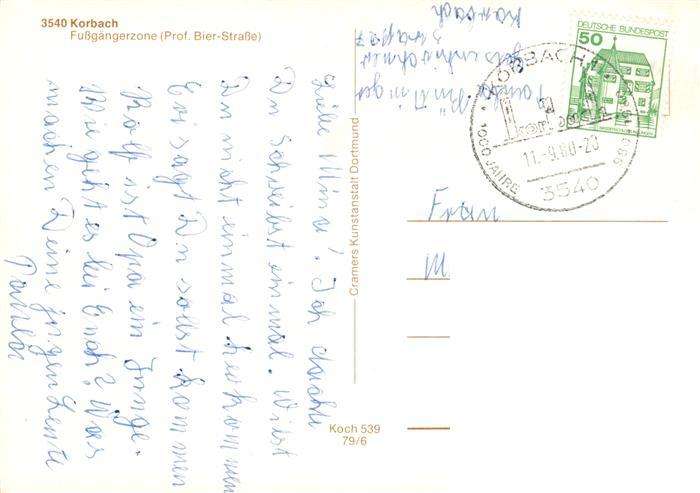 3540 Korbach
Fußgängerzone (Prof. Bier-Straße)
Liebe Minna! Ich dachte
Du schreibst einmal. Willst
Du nicht einmal her kommen
Er sagt Du sollst kommen
Rolf ist Opa ein Junge.
Wie geht es bei Euch? Was
machen Deine jungen Leute
Paula
Cramers Kunstanstalt Dortmund
Koch 539
79/6
Korbach
Paula
DEUTSCHE BUNDESPOST
50
KORBACH 1
1000 JAHRE
11.-9.80-20
3540
Frau
M